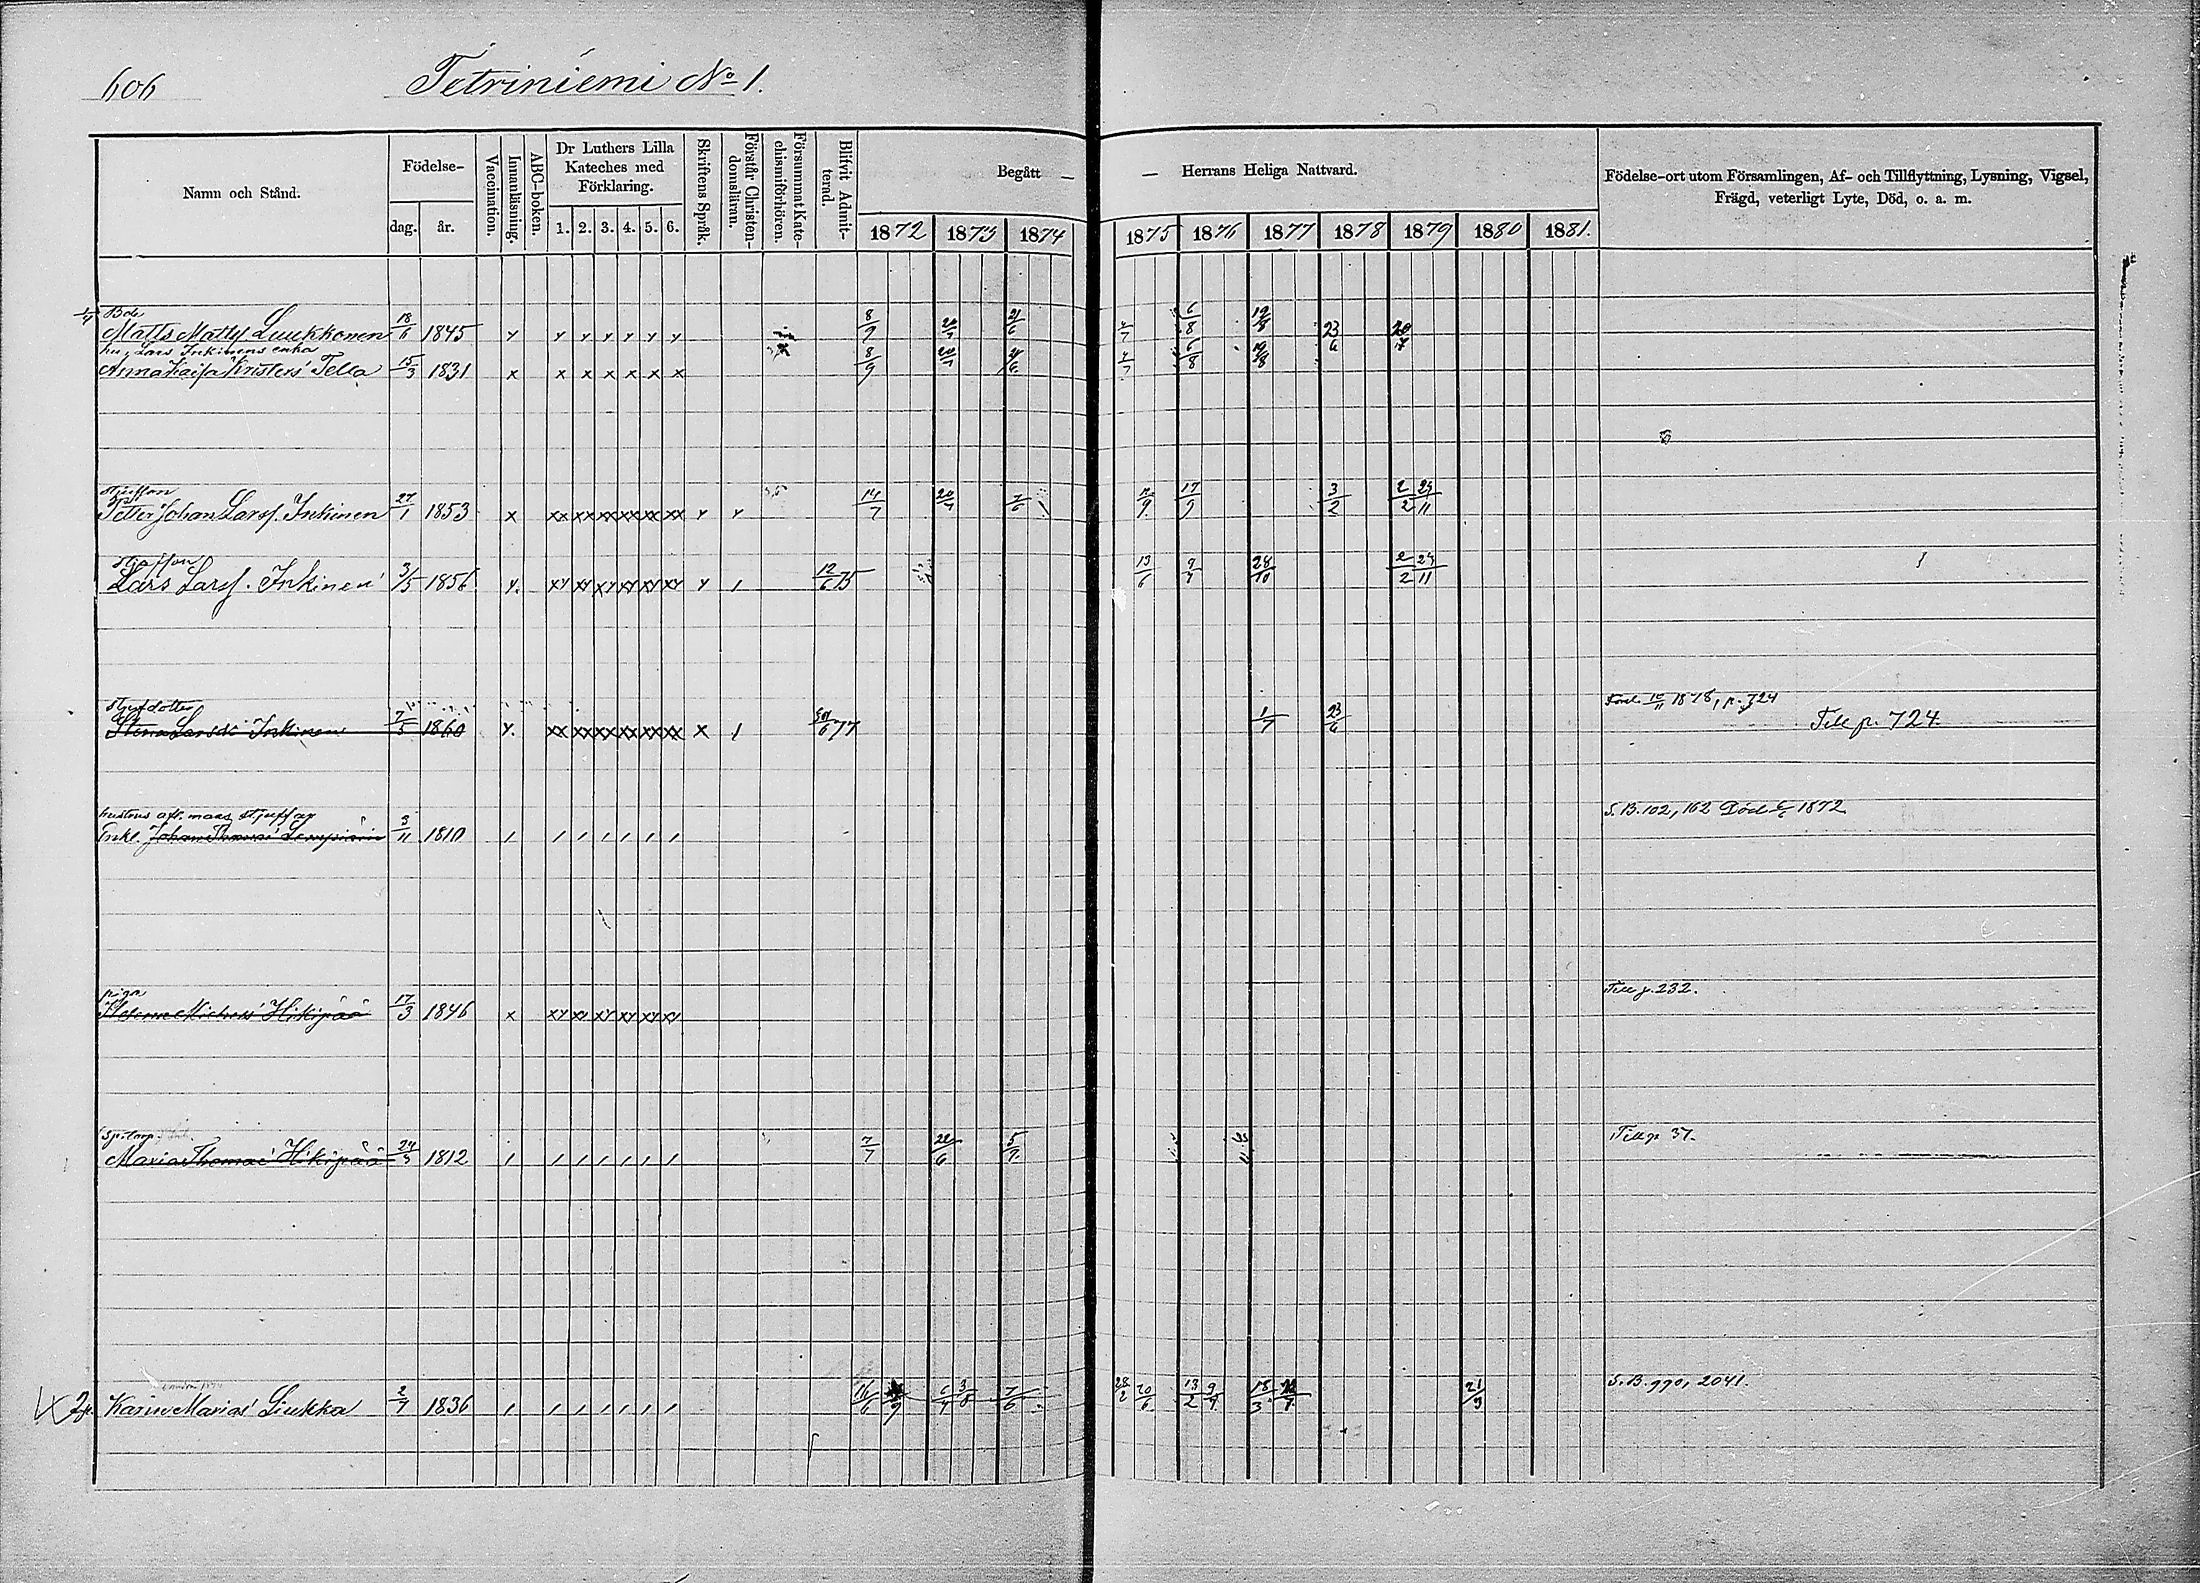 606
Tetriniemi No 1.
Namn och Stånd.
Födelse-
dag.
år.
Vaccination.
Innanläsning.
ABC-boken.
Dr Luthers Lilla
Kateches med
Förklaring.
1. 2. 3. 4. 5. 6.
Skriftens Språk.
Förstår Christen-
domsläran.
Försummat Kate-
chismiförhören.
Blifvit Admit-
terad.
Begått —
— Herrans Heliga Nattvard.
1872 1873 1874 1875 1876 1877 1878 1879 1880 1881.
Födelse-ort utom Församlingen, Af- och Tillflyttning, Lysning, Vigsel,
Frägd, veterligt Lyte, Död, o. a. m.
Matts Matts Luukkonen 18/6 1845 8/9 20/7 21/6 4/7 6/8 19/8 23/6
hu, Lars Inkinens enka
Anna Kaisa Kristers Tella 15/3 1831 x x x x x x x 8/9 20/7 21/6 4/7 6/8 19/8
Petter Johan Larsf. Inkinen 27/1 1853 x xx xx xx xx xx xx 14/7 20/7 7/6 17/9 3/2 2/2 23/11
Lars Larsf. Inkinen 3/5 1856 12/6 75 13/6 9/7 28/10 2/2 23/11
Stjufdotter
Stina Larsdr Inkinen 7/5 1860 xx xx xx xx xx xx x 77 1/7 23/6 1878, p. 724
Till p. 724.
Enkl. Johan Thomas 3/11 1810 S.B. 102, 162 Död 1872
piga
Helena Michels Hikipää 17/3 1846 Till p. 232.
Maria Thomae Hikipää 24/3 1812 7/7 22/6 5/7 Till p 37.
Karin Marias Liukka 2/7 1836 16/6 7/6 28/2 20/6 13/2 9/9 18/3 21/9 S.B. 990, 2041.